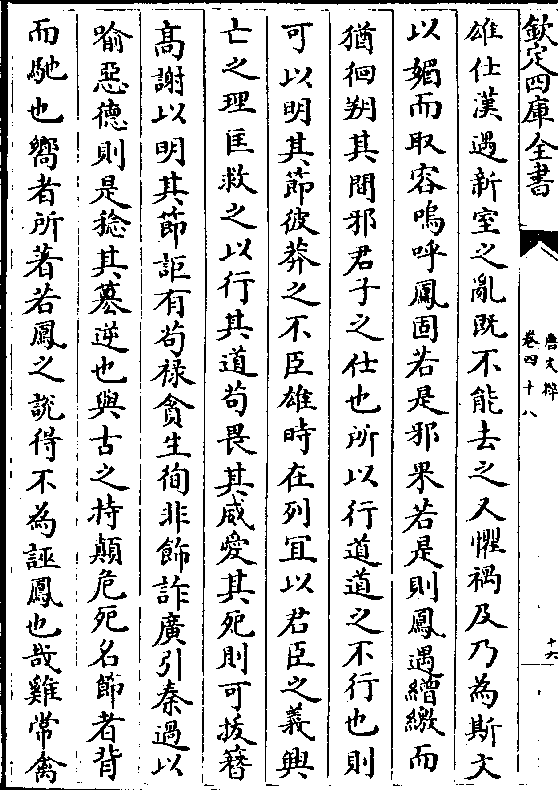 欽定四庫全書
唐文粹
卷四十八
十六
雄仕漢遇新室之亂既不能去之又懼禍及乃為斯文
以媚而取容嗚呼鳳固若是邪果若是則鳳遇繒繳而
猶徊翔其間邪君子之仕也所以行道道之不行也則
可以明其節彼莽之不臣雄時在列冝以君臣之義興
亡之理匡救之以行其道苟畏其威愛其死則可拔簪
髙謝以明其節詎有苟禄貪生徇非飾詐廣引秦過以
喻惡德則是稔其簒逆也與古之持顛危死名節者背
而馳也嚮者所著若鳳之說得不為誣鳳也哉雞常禽